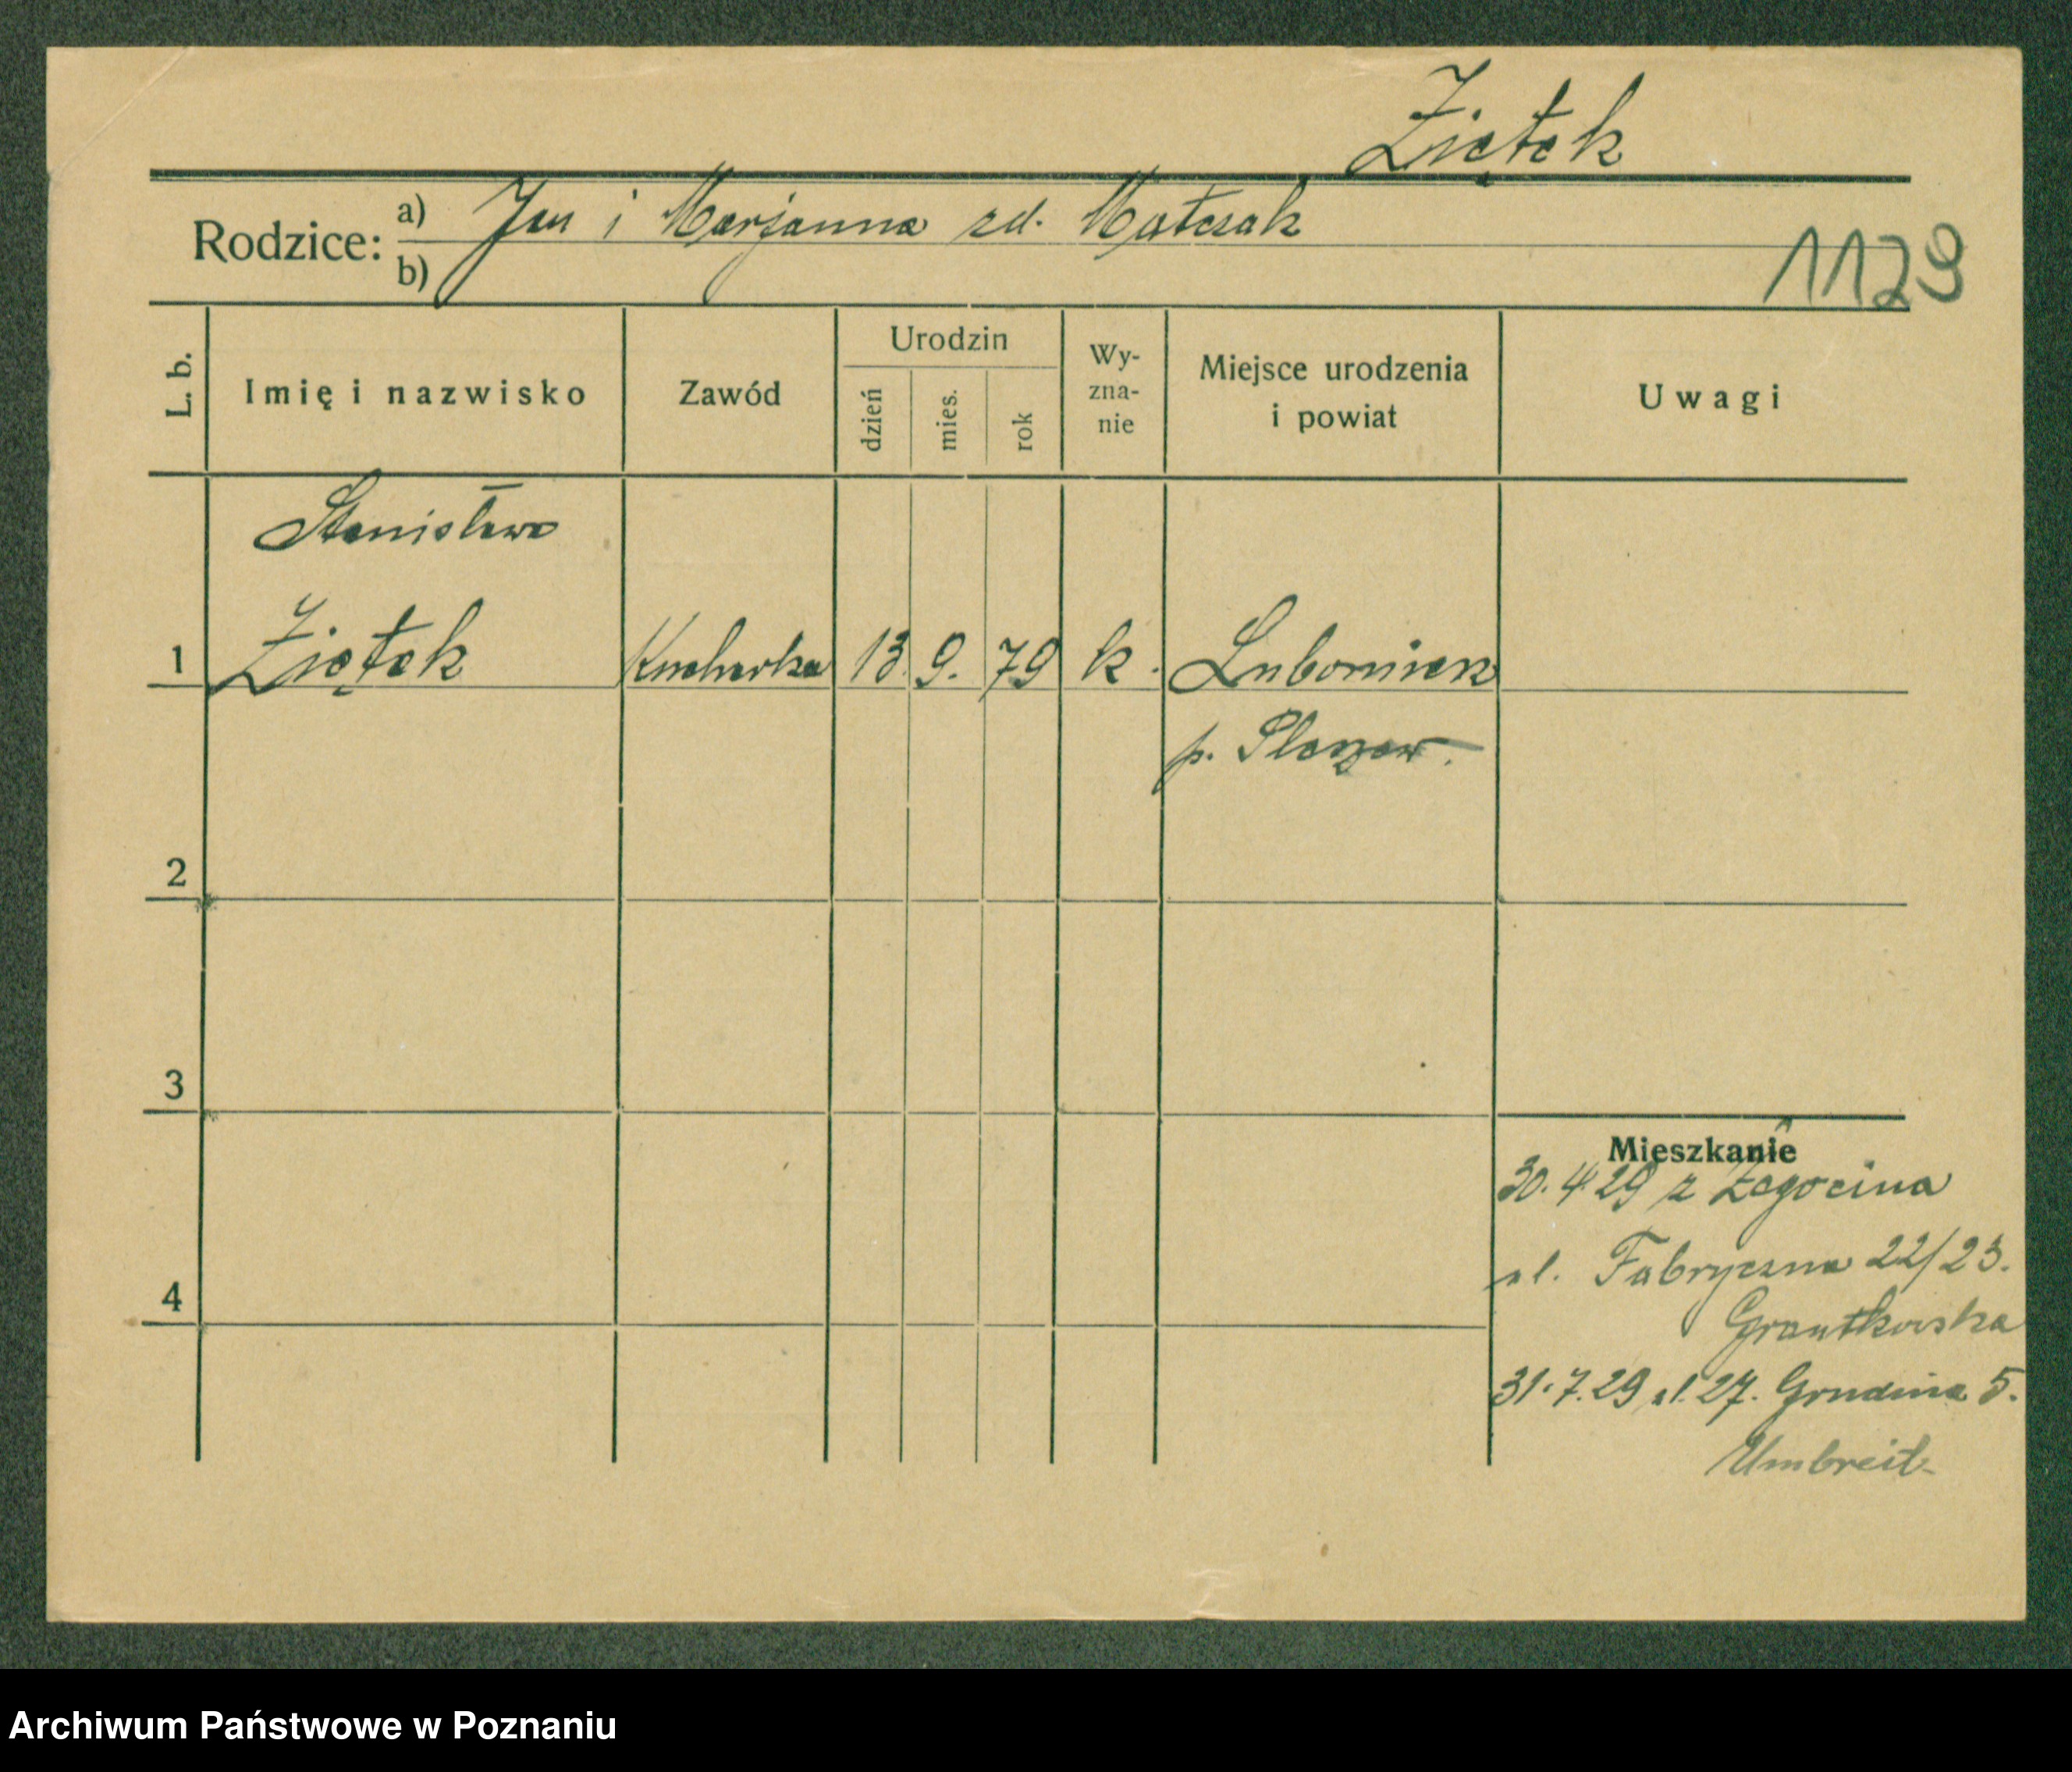 Ziętek
Rodzice: a) Jan i Marjanna zd. Matczak
b)
1129
L. b. Imię i nazwisko Zawód Urodzin dzień mies. rok Wy-zna-nie Miejsce urodzenia i powiat Uwagi
Stanisława
1 Ziętek Kucharka 13. 9. 79 k. Lubomierz
p. Pleszew.
2
3
Mieszkanie
30. 4. 29 z Żegocina
ul. Fabryczna 22/23.
4
31. 7. 29 ul. 27. Grudnia 5.
Umbreit
Archiwum Państwowe w Poznaniu